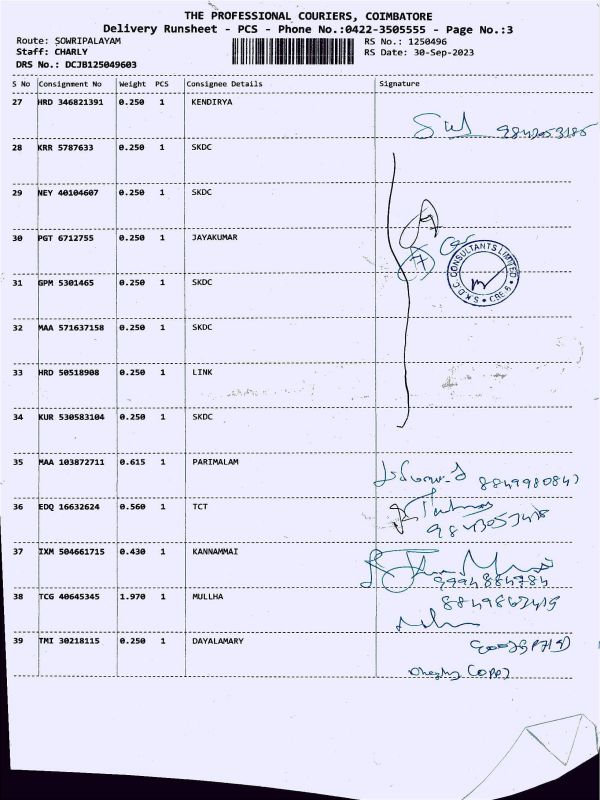 THE PROFESSIONAL COURIERS, COIMBATORE
Delivery Runsheet - PCS - Phone No.:0422-3505555 - Page No.:3
Route: SOWRIPALAYAM RS No.: 1250496
Staff: CHARLY RS Date: 30-Sep-2023
DRS No.: DCJB125049603
S No Consignment No Weight PCS Consignee Details Signature
27 HRD 346821391 0.250 1 KENDIRYA
28 KRR 5787633 0.250 1 SKDC
29 NEY 40104607 0.250 1 SKDC
30 PGT 6712755 0.250 1 JAYAKUMAR
S.K.D.C. CONSULTANTS LIMITED
CBE 6
31 GPM 5301465 0.250 1 SKDC
32 MAA 571637158 0.250 1 SKDC
33 HRD 50518908 0.250 1 LINK
34 KUR 530583104 0.250 1 SKDC
35 MAA 103872711 0.615 1 PARIMALAM
36 EDQ 16632624 0.560 1 TCT
37 IXM 504661715 0.430 1 KANNAMMAI
9994884784
38 TCG 40645345 1.970 1 MULLHA
39 TMI 30218115 0.250 1 DAYALAMARY